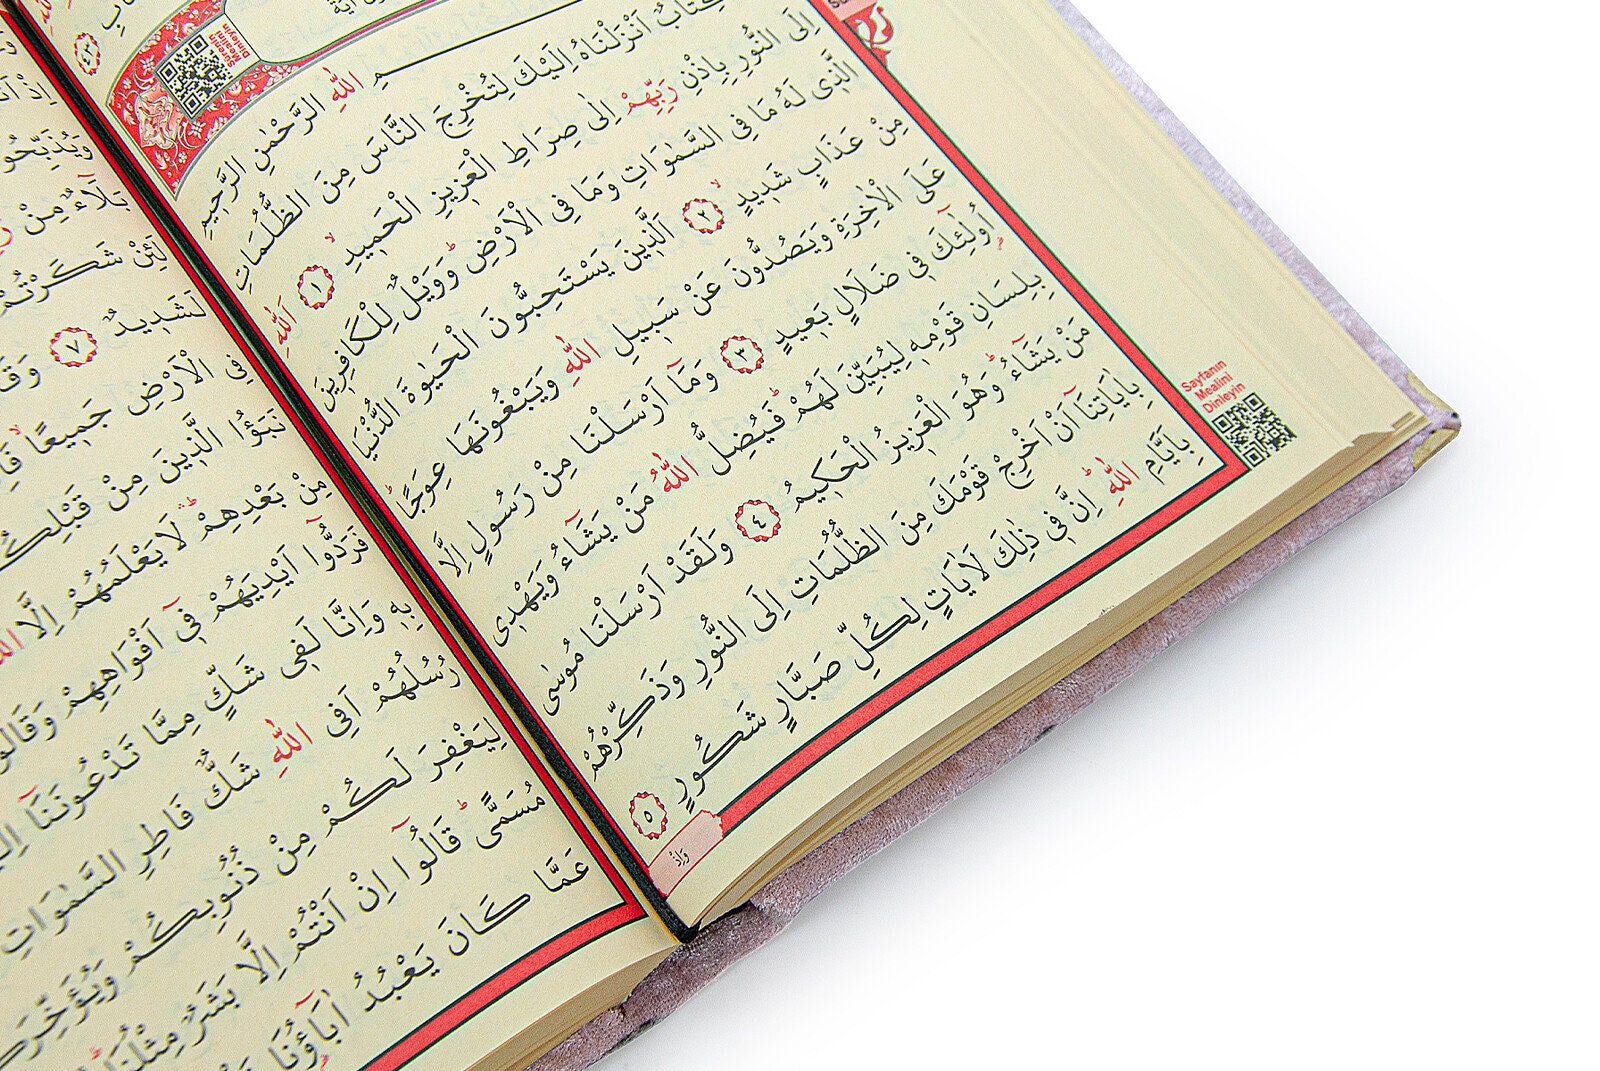 Surenin
Mealini
Dinleyin
اللّٰهِ الرَّحْمٰنِ الرَّحِيمِ
كِتَابٌ اَنْزَلْنَاهُ اِلَيْكَ لِتُخْرِجَ النَّاسَ مِنَ الظُّلُمَاتِ
اِلَى النُّورِ بِاِذْنِ رَبِّهِمْ اِلٰى صِرَاطِ الْعَزِيزِ الْحَمِيدِ ١ اَللّٰهِ
الَّذِى لَهُ مَا فِى السَّمٰوَاتِ وَمَا فِى الْاَرْضِ وَوَيْلٌ لِلْكَافِرِينَ
مِنْ عَذَابٍ شَدِيدٍ ٢ اَلَّذِينَ يَسْتَحِبُّونَ الْحَيٰوةَ الدُّنْيَا
عَلَى الْاٰخِرَةِ وَيَصُدُّونَ عَنْ سَبِيلِ اللّٰهِ وَيَبْغُونَهَا عِوَجًا
اُولٰٓئِكَ فِى ضَلَالٍ بَعِيدٍ ٣ وَمَٓا اَرْسَلْنَا مِنْ رَسُولٍ اِلَّا
بِلِسَانِ قَوْمِهٖ لِيُبَيِّنَ لَهُمْ فَيُضِلُّ اللّٰهُ مَنْ يَشَٓاءُ وَيَهْدِى
مَنْ يَشَٓاءُ وَهُوَ الْعَزِيزُ الْحَكِيمُ ٤ وَلَقَدْ اَرْسَلْنَا مُوسٰى
بِاٰيَاتِنَٓا اَنْ اَخْرِجْ قَوْمَكَ مِنَ الظُّلُمَاتِ اِلَى النُّورِ وَذَكِّرْهُمْ
بِاَيَّامِ اللّٰهِ اِنَّ فِى ذٰلِكَ لَاٰيَاتٍ لِكُلِّ صَبَّارٍ شَكُورٍ ٥
وَاِذْ
Sayfanın
Mealini
Dinleyin
بَلَٓاءٌ مِنْ
لَئِنْ شَكَرْتُمْ
لَشَدِيدٌ ٧
فِى الْاَرْضِ جَمِيعًا
نَبَؤُا الَّذِينَ مِنْ
مِنْ بَعْدِهِمْ لَا يَعْلَمُهُمْ اِلَّا
فَرَدُّٓوا اَيْدِيَهُمْ فِٓى اَفْوَاهِهِمْ
بِهٖ وَاِنَّا لَفِى شَكٍّ مِمَّا تَدْعُونَنَٓا
رُسُلُهُمْ اَفِى اللّٰهِ شَكٌّ فَاطِرِ السَّمٰوَاتِ
لِيَغْفِرَ لَكُمْ مِنْ ذُنُوبِكُمْ
مُسَمًّى قَالُٓوا اِنْ اَنْتُمْ اِلَّا بَشَرٌ مِثْلُنَا
عَمَّا كَانَ يَعْبُدُ اٰبَٓاؤُنَا